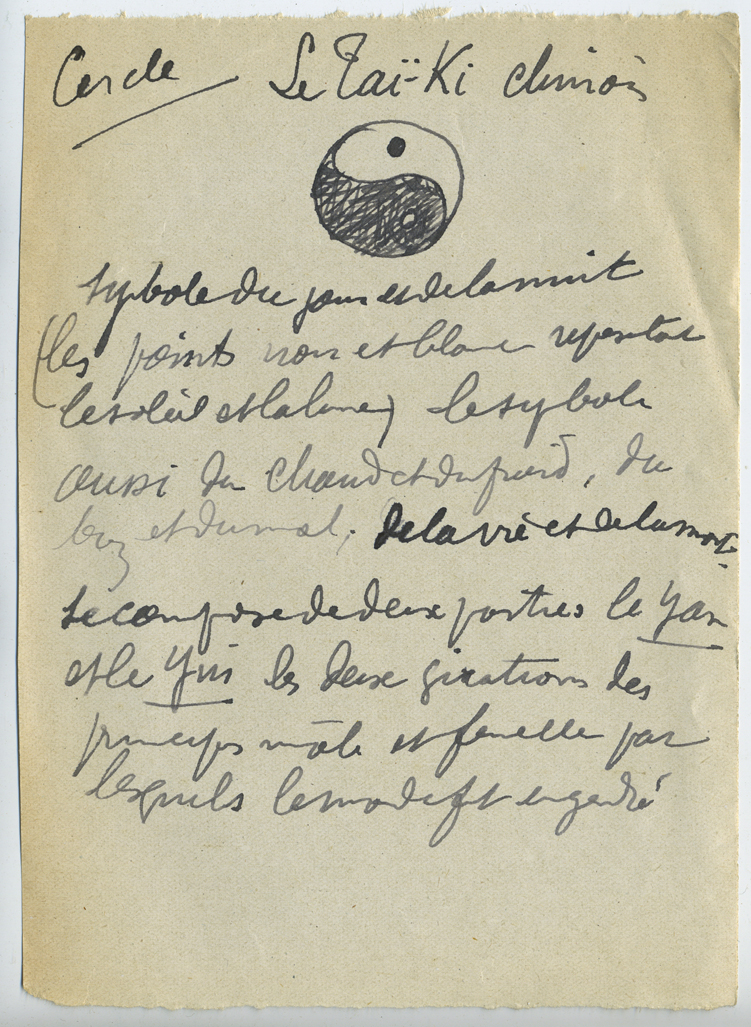 Cercle Le Taï-Ki chinois
Sybole du jour et de la nuit
(les points noir et blanc
le soleil et la lune) le sybole
aussi du chaud et du froid, du
et du mal, de la vie et de la mort.
se compose de deux parties le Yan
et le Yin les deux girations des
principes mâle et femelle par
lesquels le monde fut engendré